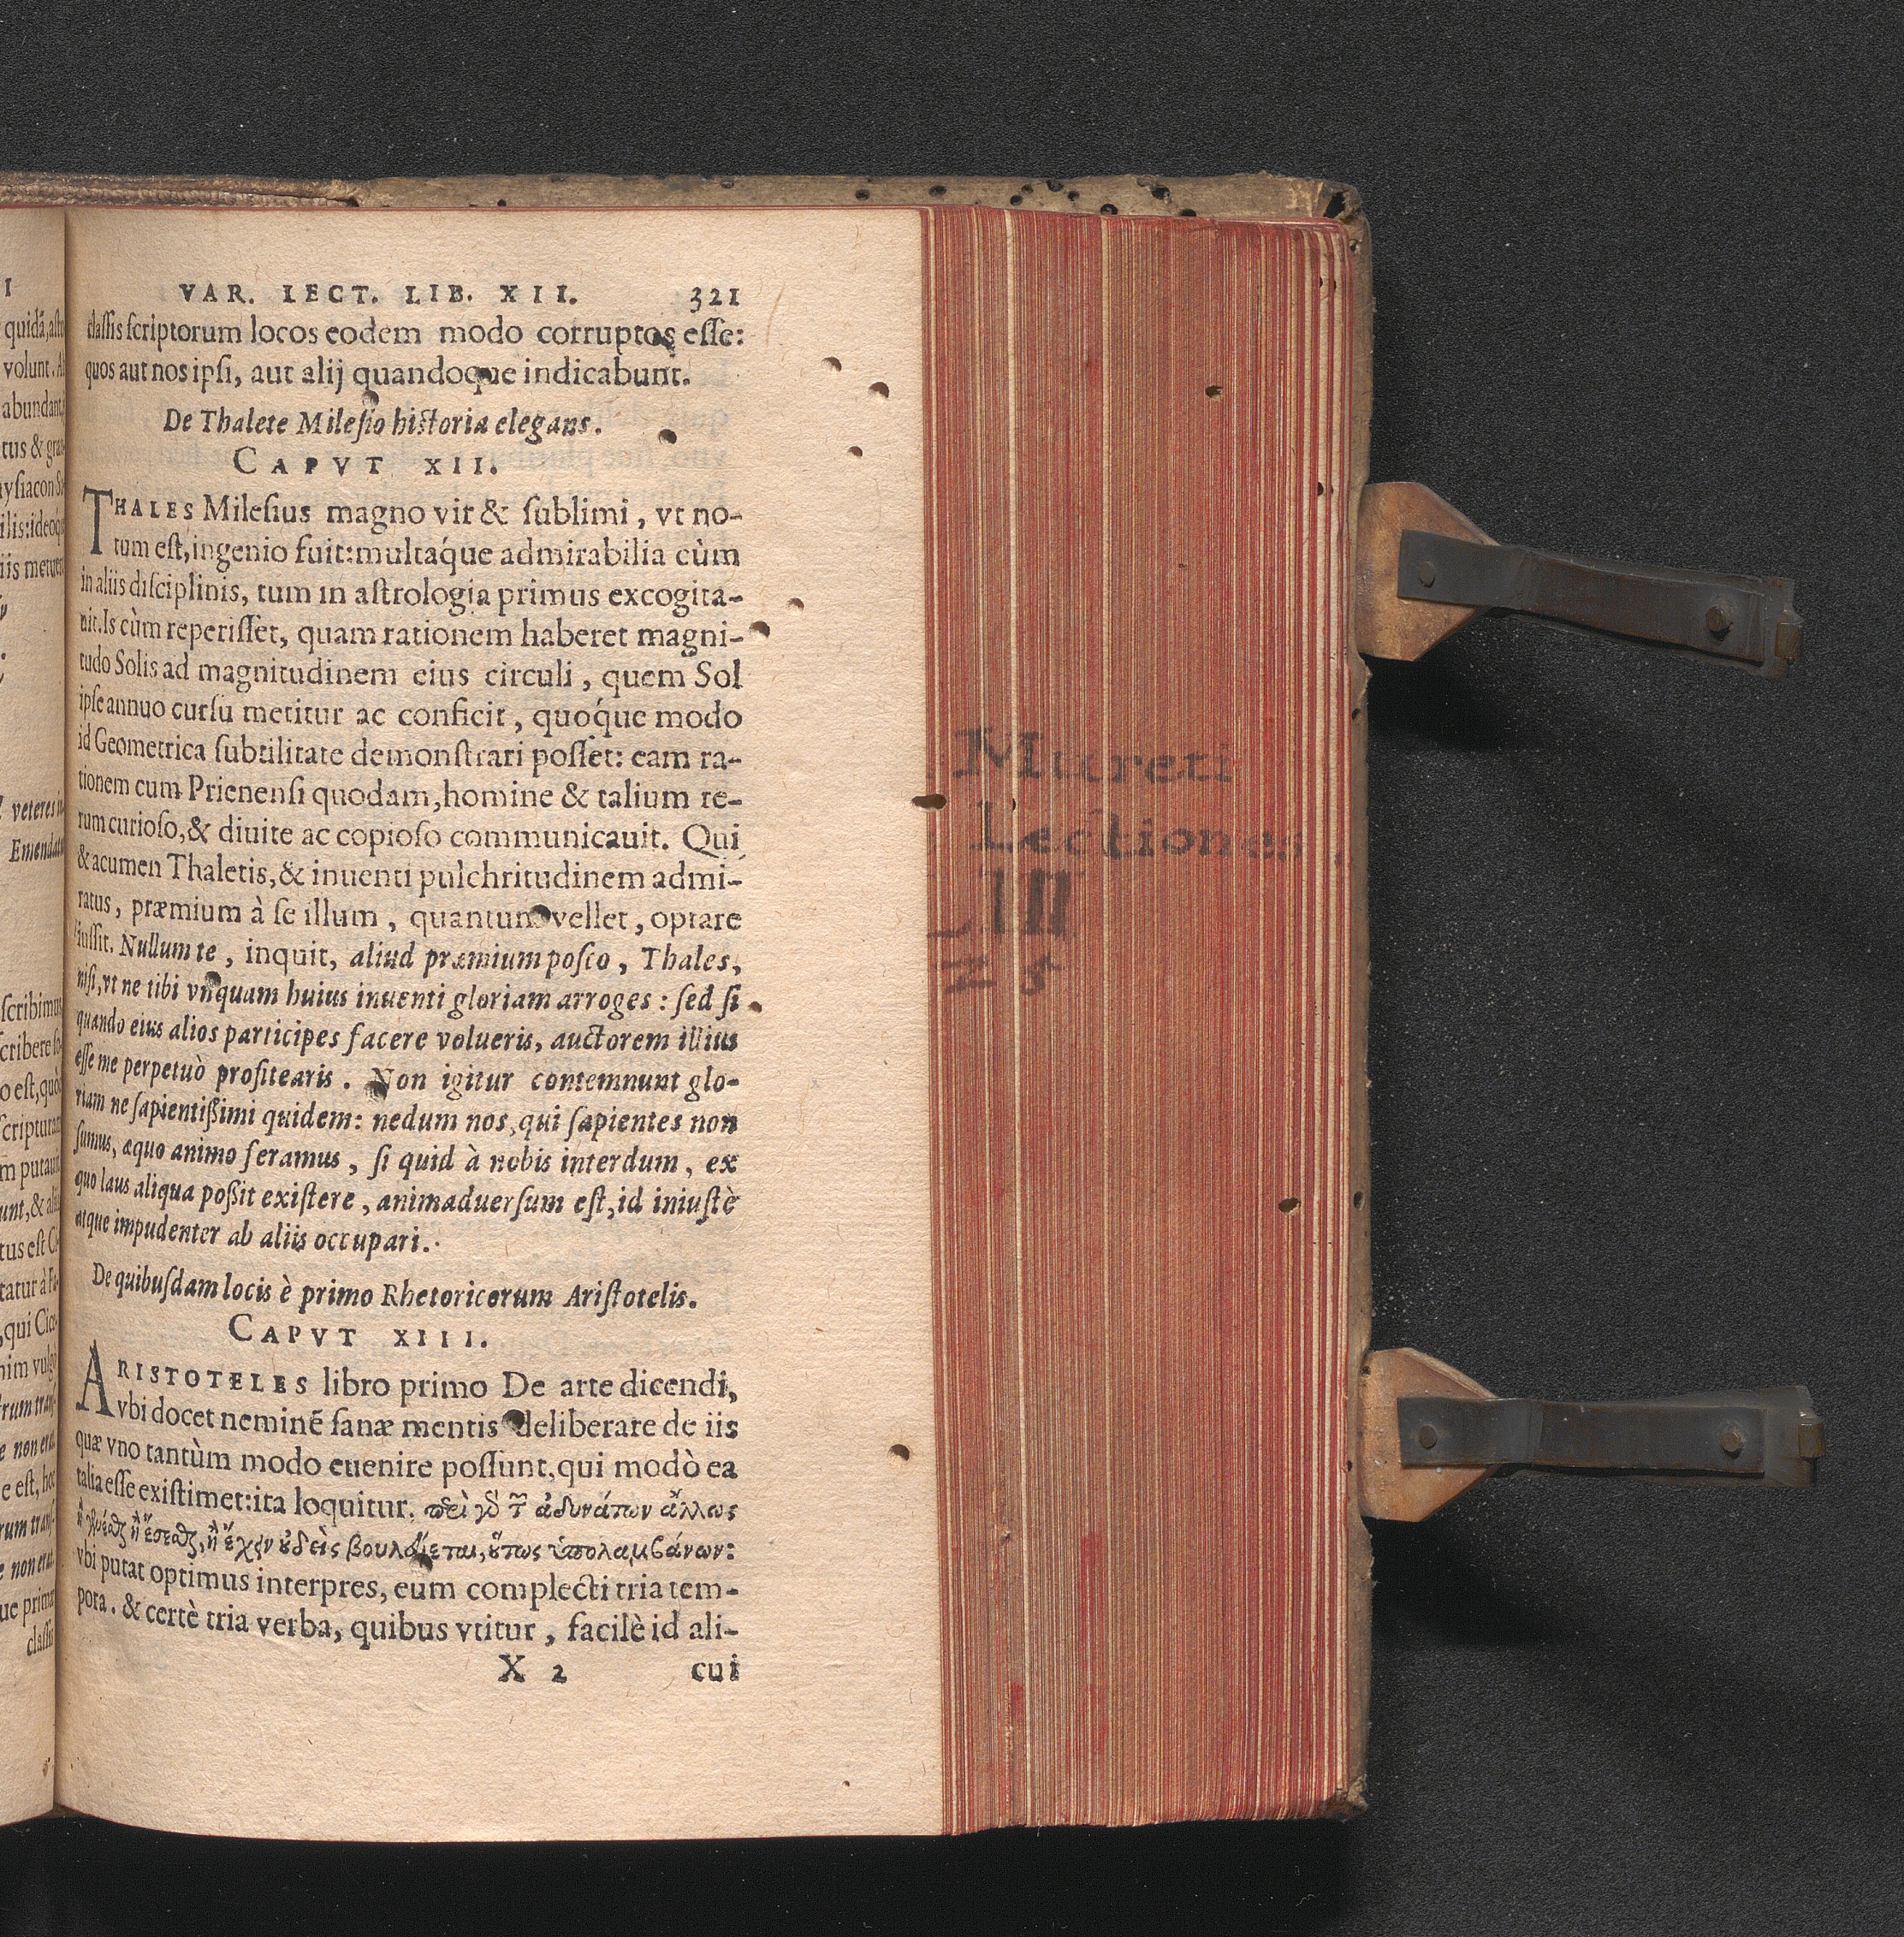 VAR. LECT. LIB. XII. 321
classis scriptorum locos eodem modo corruptos esse:
quos aut nos ipsi, aut alij quandoque indicabunt.
De Thalete Milesio historia elegans.
CAPVT XII.
THALES Milesius magno vir & sublimi, vt no-
tum est, ingenio fuit: multáque admirabilia cùm
in aliis disciplinis, tum in astrologia primus excogita-
uit. Is cùm reperisset, quam rationem haberet magni-
tudo Solis ad magnitudinem eius circuli, quem Sol
ipse annuo cursu metitur ac conficit, quóque modo
id Geometrica subtilitate demonstrari posset: eam ra-
tionem cum Prienensi quodam, homine & talium re-
rum curioso, & diuite ac copioso communicauit. Qui
& acumen Thaletis, & inuenti pulchritudinem admi-
ratus, præmium à se illum, quantum vellet, optare
iussit. Nullum te, inquit, aliud præmium posco, Thales,
nisi, vt ne tibi vnquam huius inuenti gloriam arroges: sed si
quando eius alios participes facere volueris, auctorem illius
esse me perpetuò profitearis. Non igitur contemnunt glo-
riam ne sapientißimi quidem: nedum nos, qui sapientes non
sumus, æquo animo feramus, si quid à nobis interdum, ex
quo laus aliqua poßit existere, animaduersum est, id iniustè
atque impudenter ab aliis occupari.
De quibusdam locis è primo Rhetoricorum Aristotelis.
CAPVT XIII.
ARISTOTELES libro primo De arte dicendi,
vbi docet neminẽ sanæ mentis deliberare de iis
quæ vno tantùm modo euenire possunt, qui modò ea
talia esse existimet: ita loquitur. πεὶ γὸ τ͂ ἀδυνάτων ἄλλως
ἢ γενέσθαι ἢ ἔσεσθαι, ἢ ἔχειν οὐδεὶς βουλεύεται, οὕτως ὑπολαμβάνων:
vbi putat optimus interpres, eum complecti tria tem-
pora. & certè tria verba, quibus vtitur, facilè id ali-
X 2 cui
Mureti
Lectiones
III
25